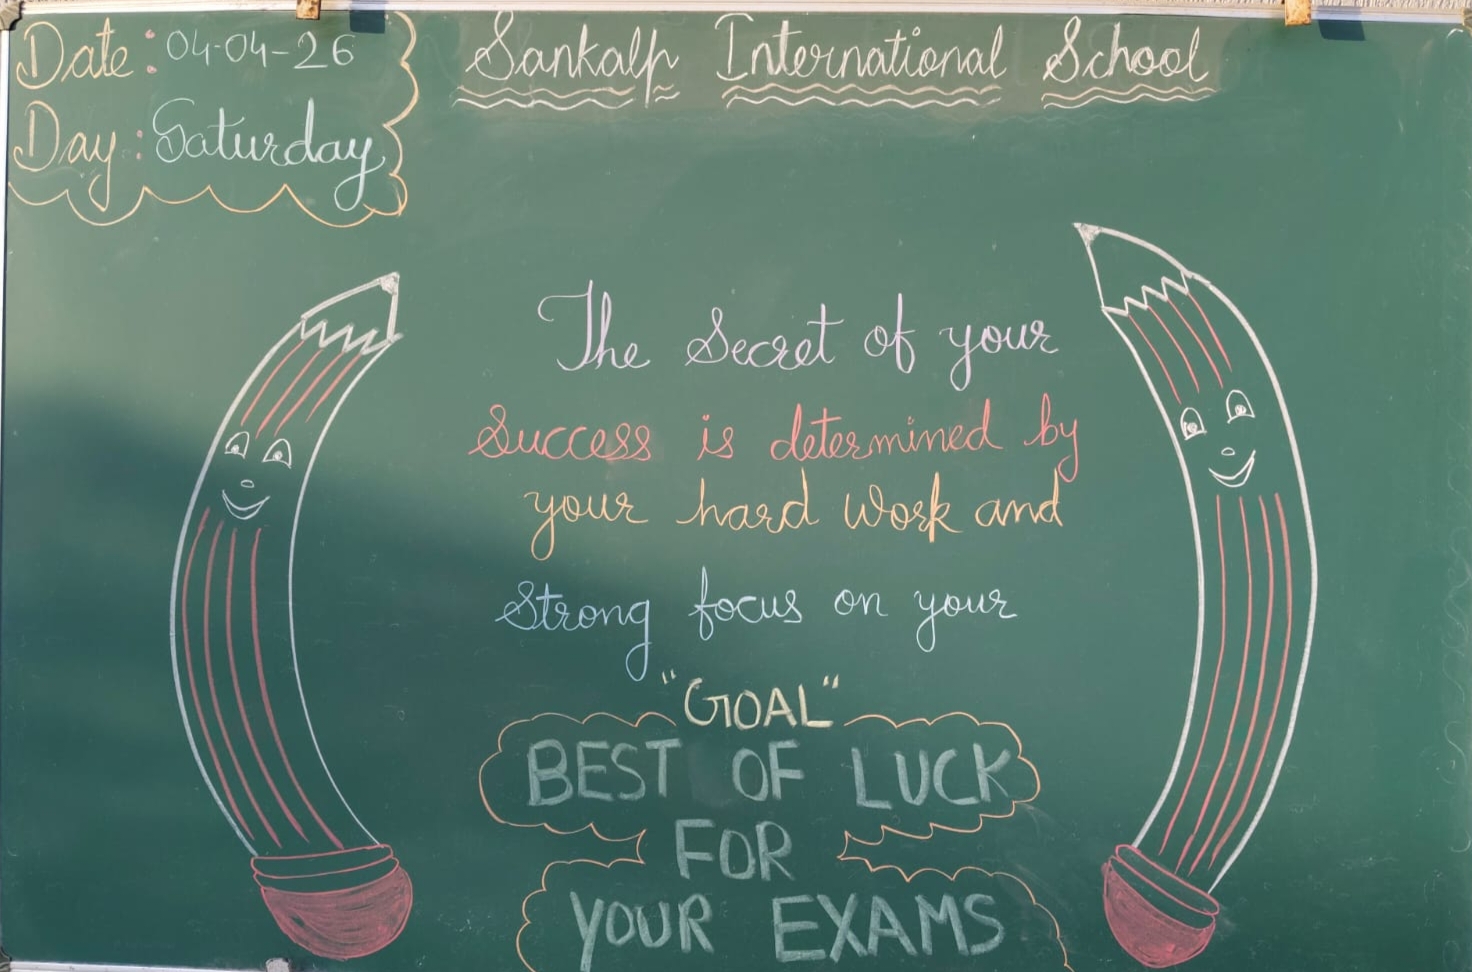 Date: 04-04-26
Day: Saturday
Sankalp International School
The Secret of your
Success is determined by
your hard work and
Strong focus on your
"GOAL"
BEST OF LUCK
FOR
YOUR EXAMS